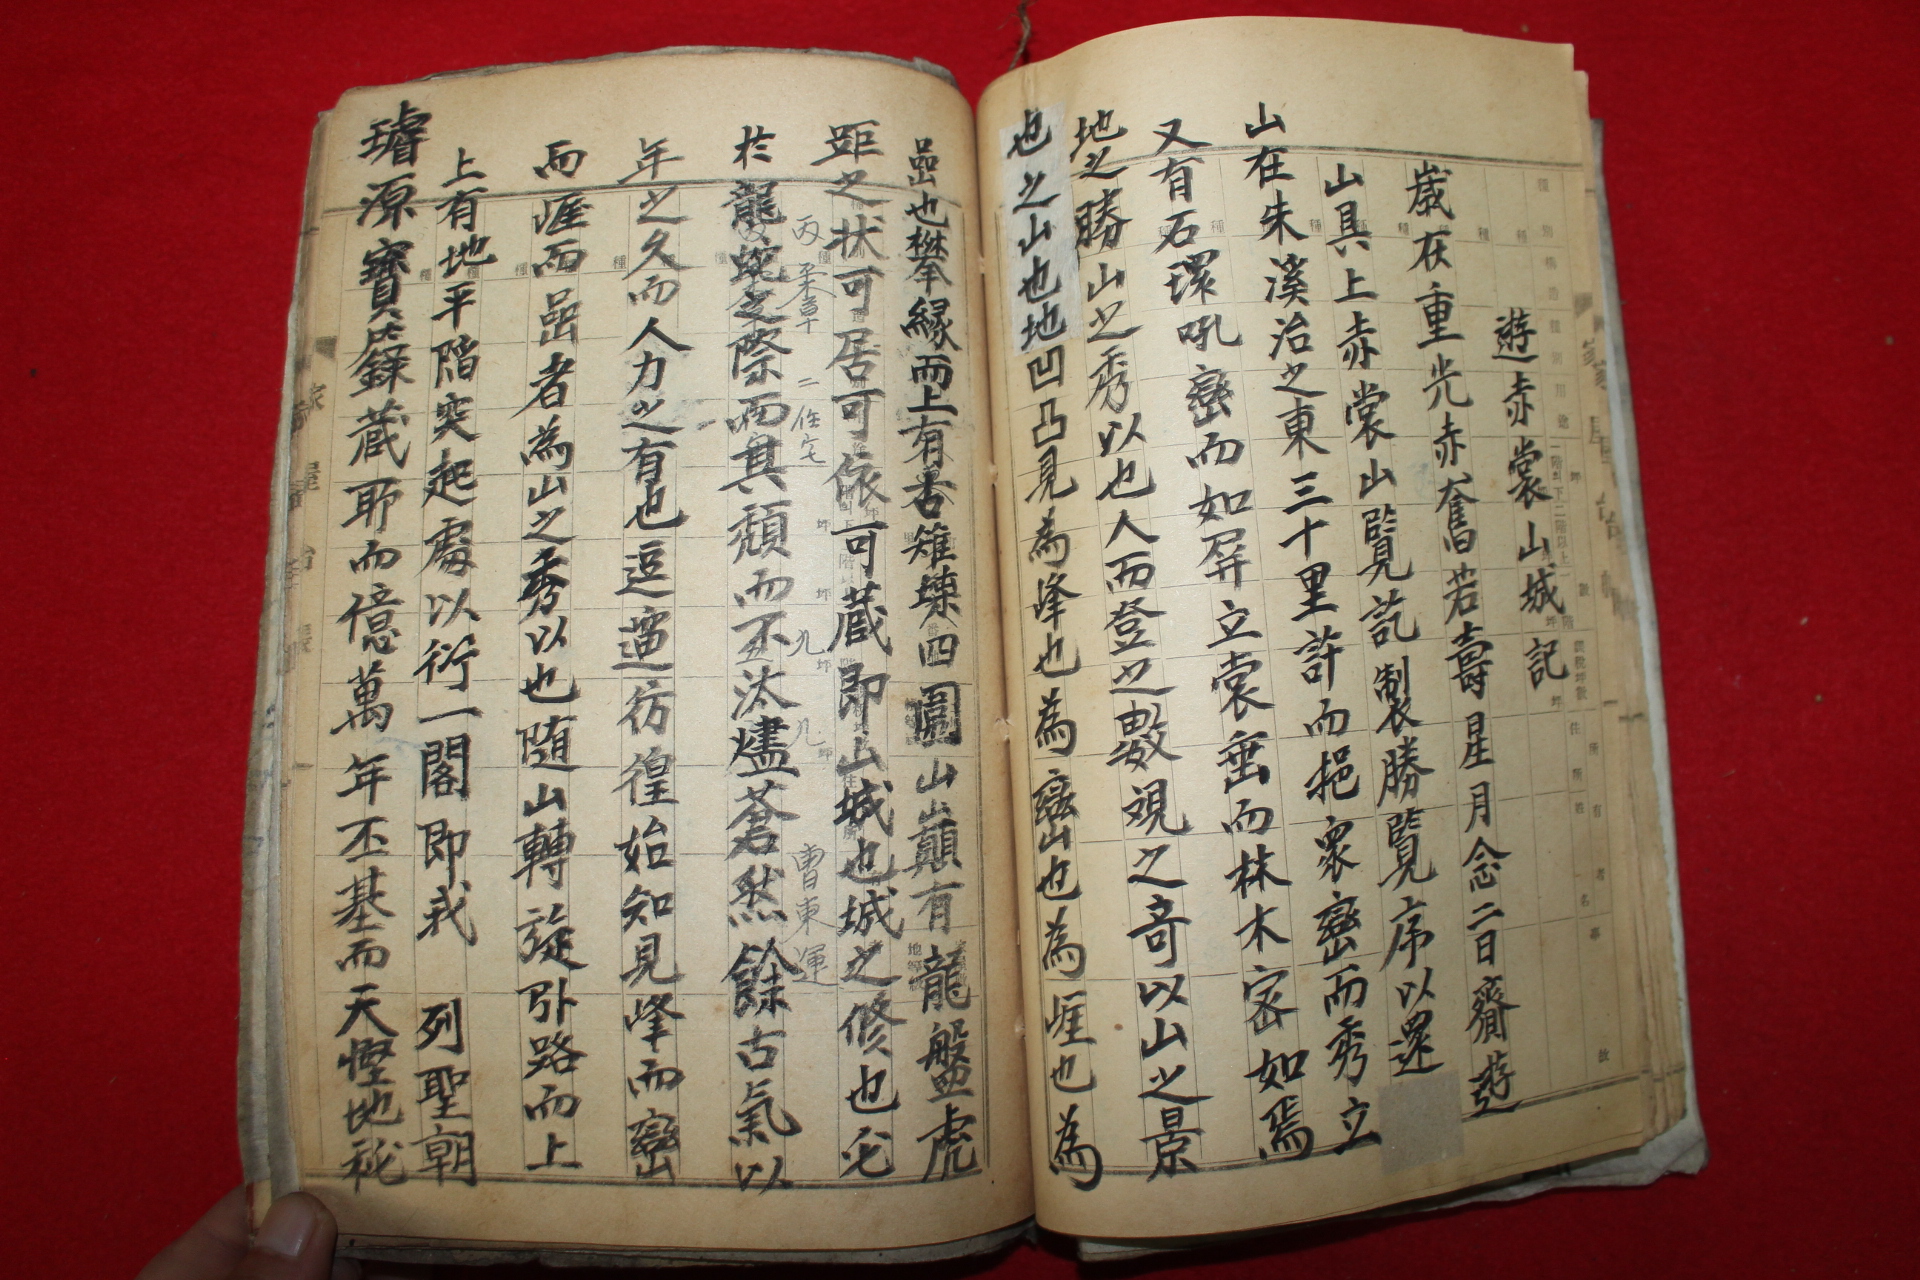 遊赤裳山城記
歲在重光赤奮若壽星月念二日齋遊
山具上赤裳山覽訖製勝覽序以還
山在朱溪治之東三十里許而挹衆巒而秀立
又有石環吼巒而如屛立裳垂而林木密如焉
地之勝山之秀以也人而登之數覌之奇以山之景
也之山也地凹凸見為峰也為巒也為崕也為
嵒也攀緣而上有沓雉堞四圍山巓有龍盤虎
距之状可居可依可蔵即山城也城之修也乇
於龍蛇之際而其頹而丕汰燼蒼然餘古氣以
年之久而人力之有也逗遛彷徨始知見峰而巒
而崕而嵒者為山之秀以也随山轉旋引路而上
上有地平陷突起處以衍一閣即我 列聖朝
璿源寶錄蔵耶而億萬年丕基而天慳地秘